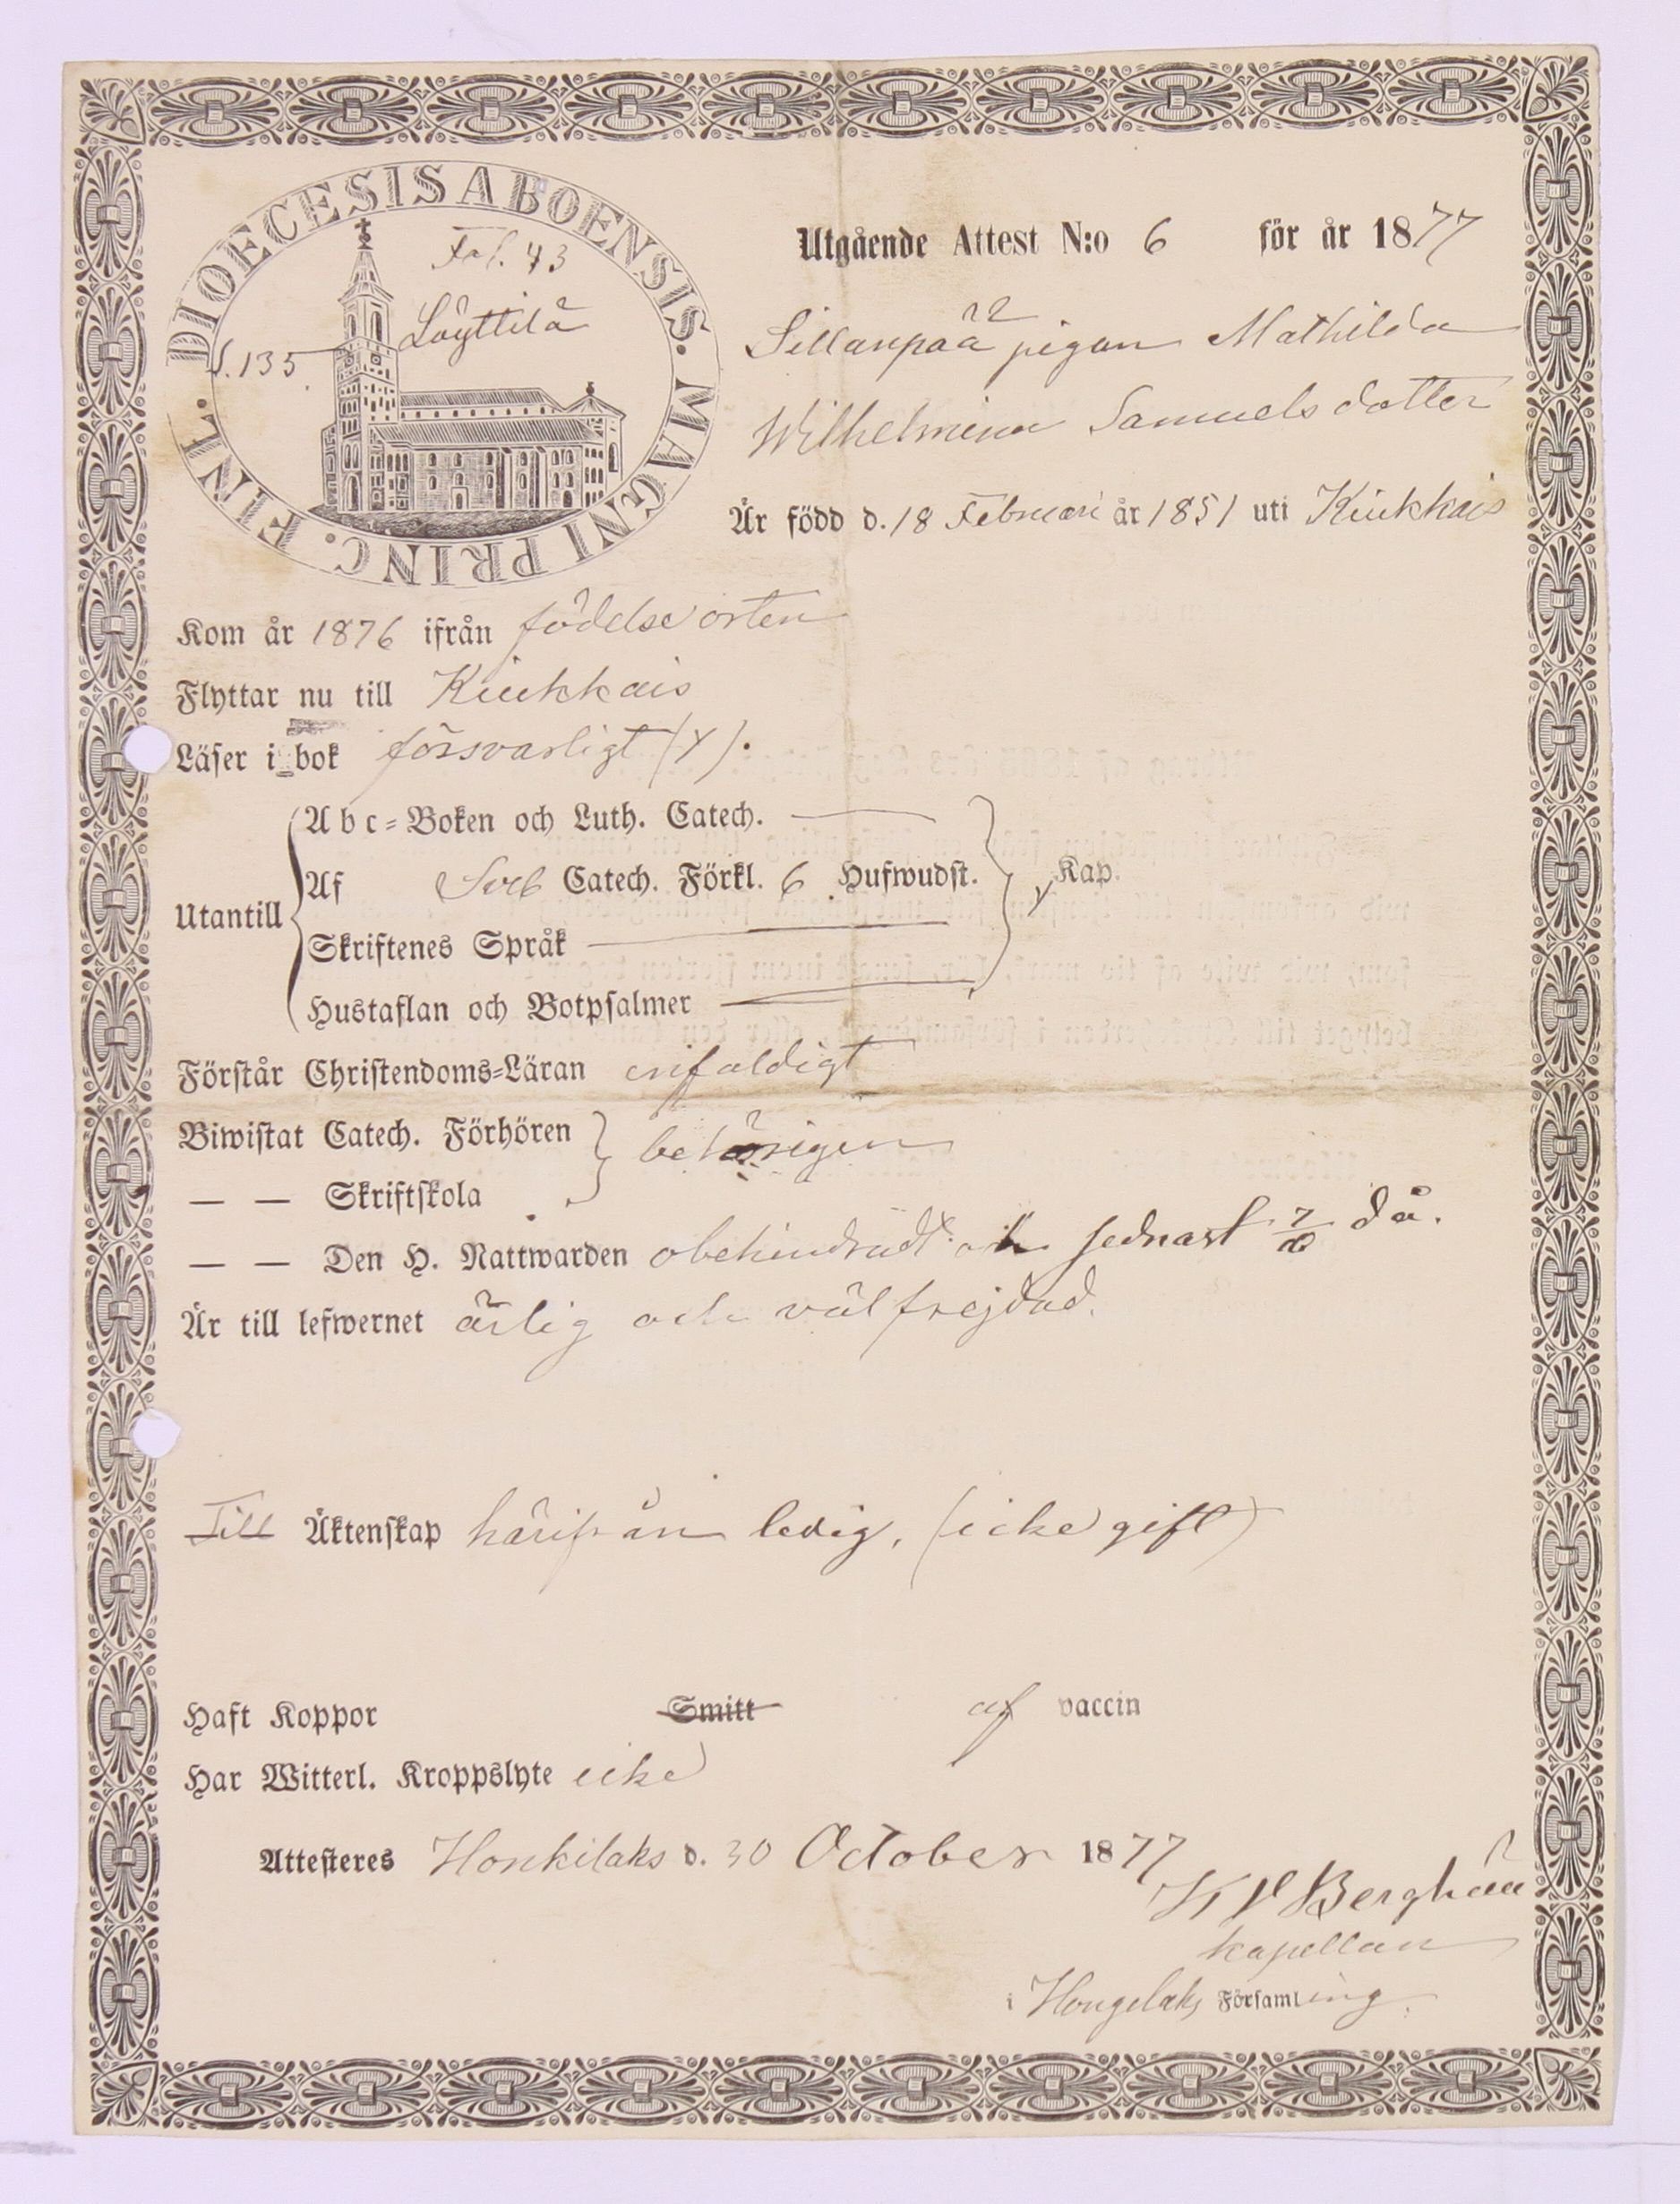 DIOECESIS ABOENSIS. MAGNI PRINC. FINL.
Fol. 43
Löyttilä
S. 135.
Utgående Attest N:o 6 för år 1877
Sillanpää pigan Mathilda
Wilhelmina Samuelsdotter
Är född d. 18 Februari år 1851 uti Kiukkais
Kom år 1876 ifrån födelseorten
Flyttar nu till Kiukkais
Läser i bok försvarligt (Y).
Utantill
Abc-Boken och Luth. Catech.
Af Sveb Catech. Förkl. 6 Hufwudst. Y Kap.
Skriftenes Språk
Hustaflan och Botpsalmer
Förstår Christendoms-Läran enfaldigt
Biwistat Catech. Förhören behörigen
— — Skriftskola
— — Den H. Nattwarden obehindradt sednast 7/10 då.
Är till lefwernet ärlig och välfrejdad.
Till Äktenskap härifrån ledig, (icke gift)
Haft Koppor Smitt af vaccin
Har Witterl. Kroppslyte icke
Attesteres Honkilaks d. 30 October 1877
Berghäll
kapellan
i Hongelaks Församling.